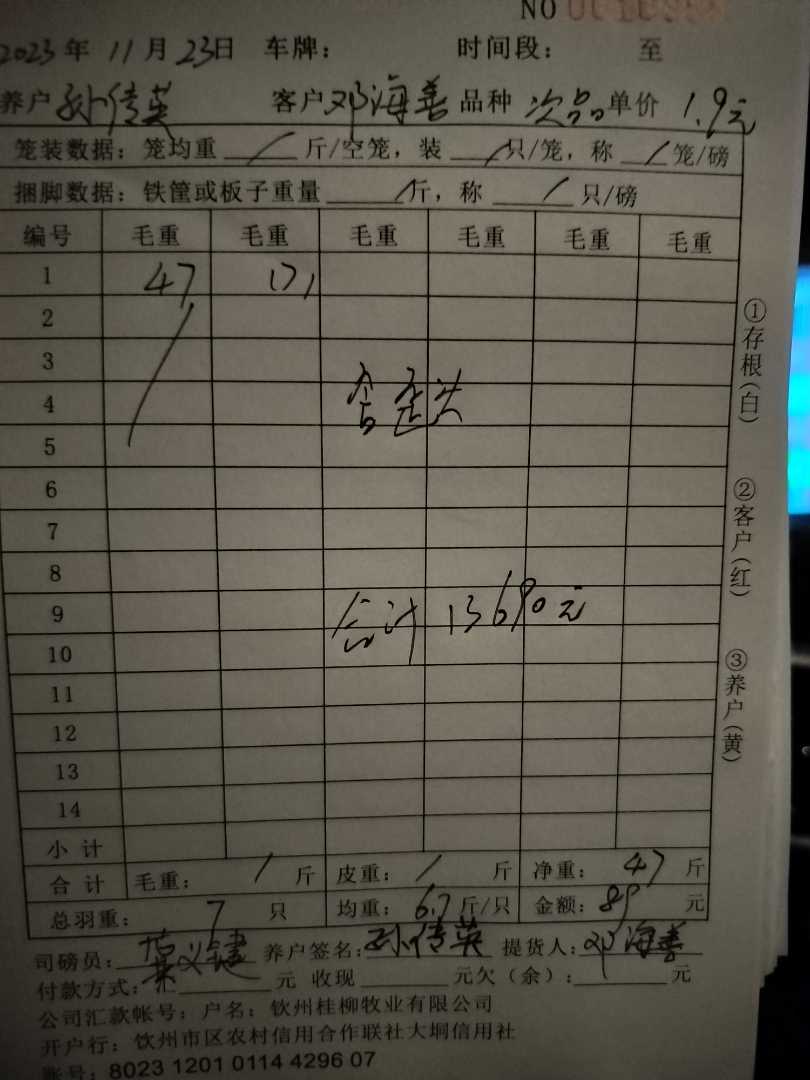 NO
2023 年 11 月 23 日 车牌: 时间段: 至
养户 孙传英 客户 邓海善 品种 次品 单价 1.9元
笼装数据: 笼均重 / 斤/空笼, 装 / 只/笼, 称 / 笼/磅
捆脚数据: 铁筐或板子重量 / 斤, 称 / 只/磅
编号 毛重 毛重 毛重 毛重 毛重 毛重
1 47 171
2
3
4 含歪头
5
6
7
8
9 合计 13690元
10
11
12
13
14
小计
合计 毛重: / 斤 皮重: / 斤 净重: 47 斤
总羽重: 7 只 均重: 6.7 斤/只 金额: 89 元
司磅员: 叶义键 养户签名: 孙传英 提货人: 邓海善
付款方式: 元 收现 元欠(余): 元
公司汇款帐号: 户名: 钦州桂柳牧业有限公司
开户行: 钦州市区农村信用合作联社大垌信用社
账号: 8023 1201 0114 4296 07
①存根(白)
②客户(红)
③养户(黄)